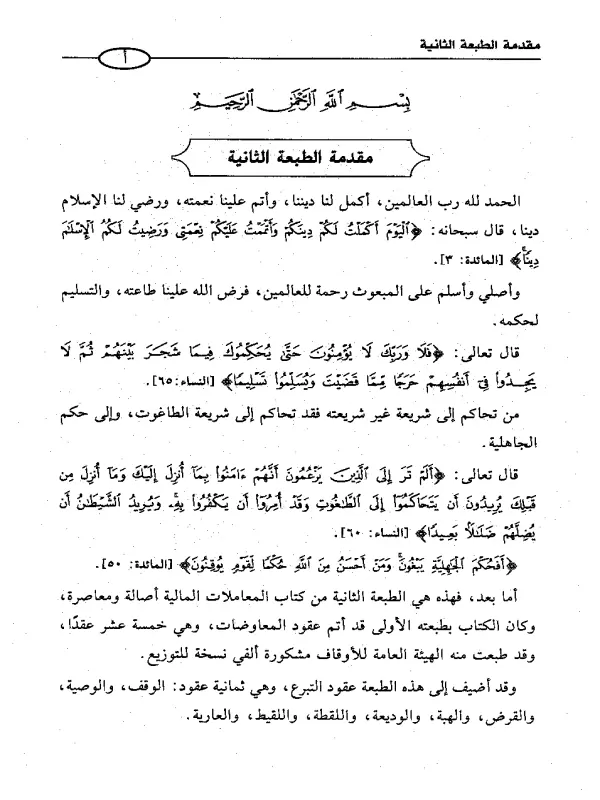 مقدمة الطبعة الثانية
أ
بِسْمِ اللَّهِ الرَّحْمَنِ الرَّحِيمِ
مقدمة الطبعة الثانية
الحمد لله رب العالمين، أكمل لنا ديننا، وأتم علينا نعمته، ورضي لنا الإسلام
دينا، قال سبحانه: ﴿ٱلْيَوْمَ أَكْمَلْتُ لَكُمْ دِينَكُمْ وَأَتْمَمْتُ عَلَيْكُمْ نِعْمَتِى وَرَضِيتُ لَكُمُ ٱلْإِسْلَٰمَ
دِينًاۚ﴾ [المائدة: ٣].
وأصلي وأسلم على المبعوث رحمة للعالمين، فرض الله علينا طاعته، والتسليم
لحكمه.
قال تعالى: ﴿فَلَا وَرَبِّكَ لَا يُؤْمِنُونَ حَتَّىٰ يُحَكِّمُوكَ فِيمَا شَجَرَ بَيْنَهُمْ ثُمَّ لَا
يَجِدُوا۟ فِىٓ أَنفُسِهِمْ حَرَجًا مِّمَّا قَضَيْتَ وَيُسَلِّمُوا۟ تَسْلِيمًا﴾ [النساء: ٦٥].
من تحاكم إلى شريعة غير شريعته فقد تحاكم إلى شريعة الطاغوت، وإلى حكم
الجاهلية.
قال تعالى: ﴿أَلَمْ تَرَ إِلَى ٱلَّذِينَ يَزْعُمُونَ أَنَّهُمْ ءَامَنُوا۟ بِمَآ أُنزِلَ إِلَيْكَ وَمَآ أُنزِلَ مِن
قَبْلِكَ يُرِيدُونَ أَن يَتَحَاكَمُوٓا۟ إِلَى ٱلطَّٰغُوتِ وَقَدْ أُمِرُوٓا۟ أَن يَكْفُرُوا۟ بِهِۦۖ وَيُرِيدُ ٱلشَّيْطَٰنُ أَن
يُضِلَّهُمْ ضَلَٰلًۢا بَعِيدًا﴾ [النساء: ٦٠].
﴿أَفَحُكْمَ ٱلْجَٰهِلِيَّةِ يَبْغُونَۚ وَمَنْ أَحْسَنُ مِنَ ٱللَّهِ حُكْمًا لِّقَوْمٍ يُوقِنُونَ﴾ [المائدة: ٥٠].
أما بعد، فهذه هي الطبعة الثانية من كتاب المعاملات المالية أصالة ومعاصرة،
وكان الكتاب بطبعته الأولى قد أتم عقود المعاوضات، وهي خمسة عشر عقدًا،
وقد طبعت منه الهيئة العامة للأوقاف مشكورة ألفي نسخة للتوزيع.
وقد أضيف إلى هذه الطبعة عقود التبرع، وهي ثمانية عقود: الوقف، والوصية،
والقرض، والهبة، والوديعة، واللقطة، واللقيط، والعارية.